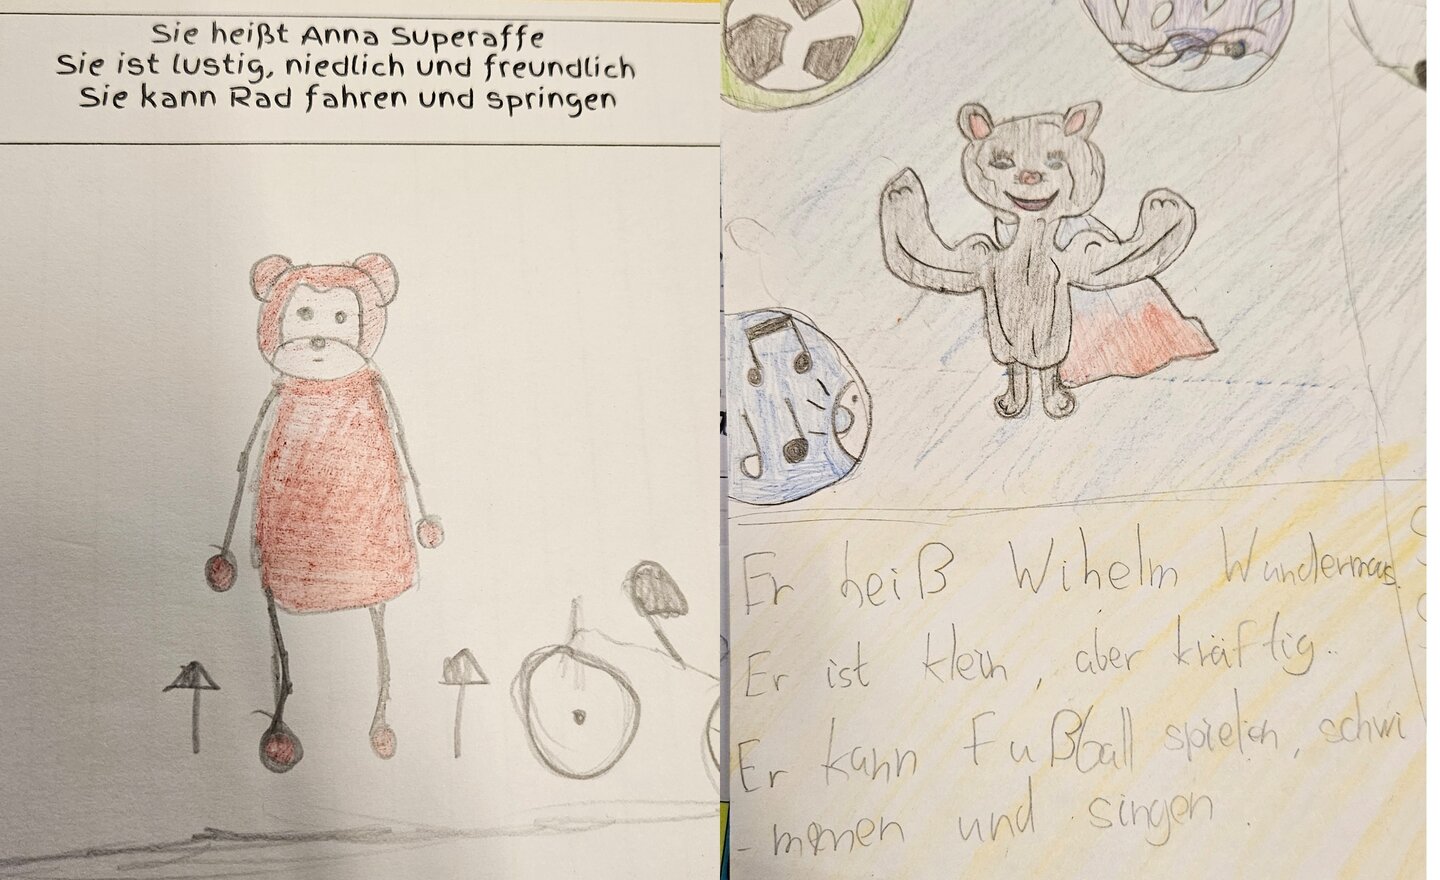 Sie heißt Anna Superaffe
Sie ist lustig, niedlich und freundlich
Sie kann Rad fahren und springen
Er heiß Wihelm Wundermaus.
Er ist klein, aber kräftig.
Er kann Fußball spielen, schwi
-mmen und singen.